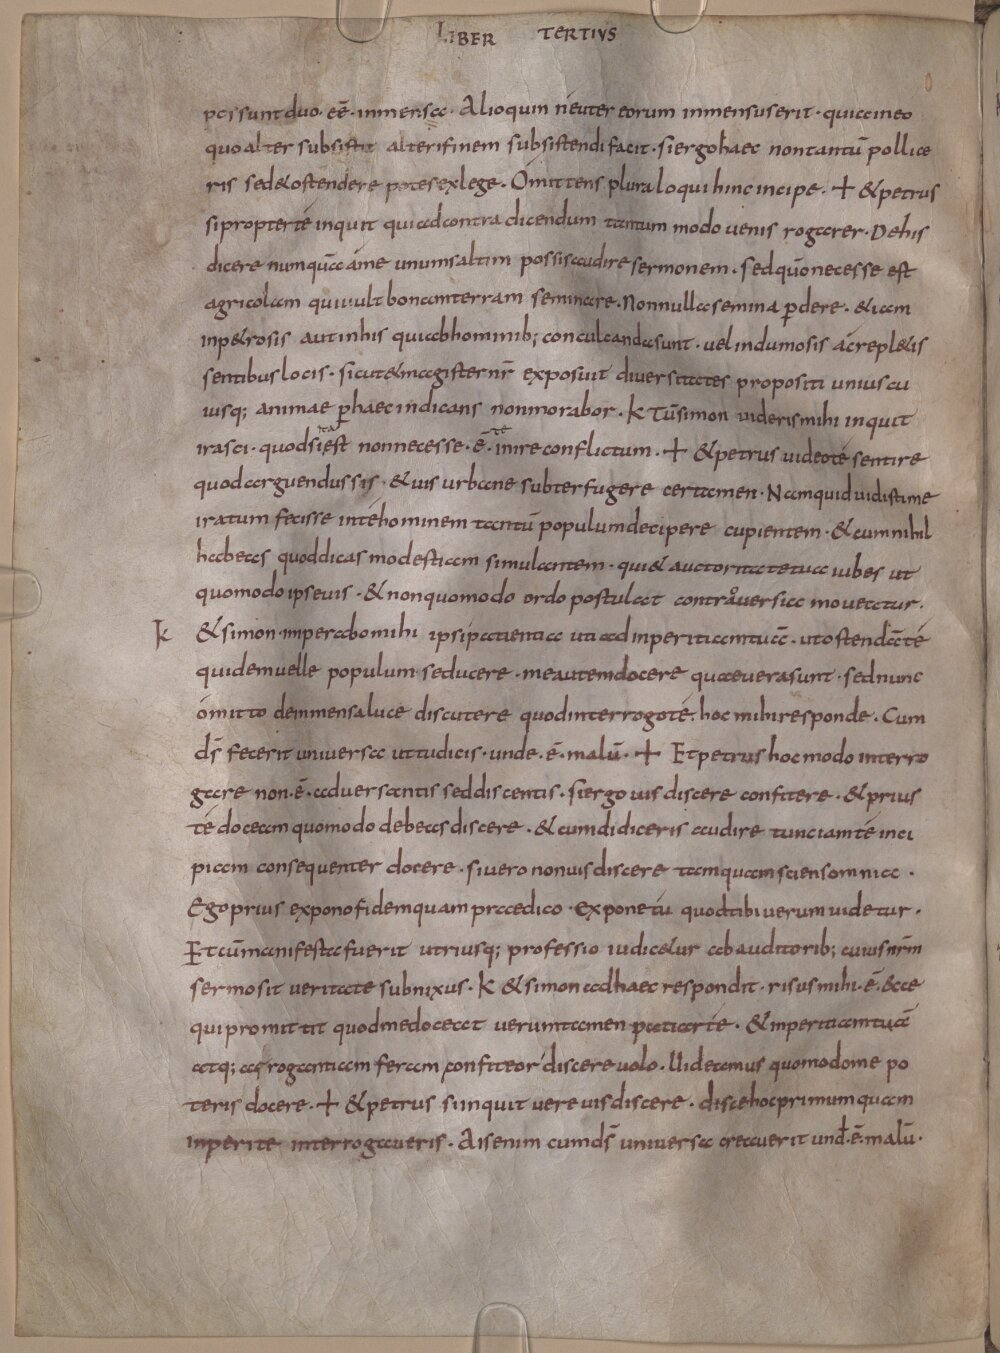 LIBER TERTIVS
possunt duo · eē · inmensa · Alioquin neuter eorum inmensus erit · quia in eo
quo alter subsistit alteri finem subsistendi facit · si ergo haec non tantū pollice
ris sed & ostendere potes ex lege · Omittens plura loqui hinc incipe · + & petrus
si propter té inquit qui ad contradicendum tantum modo uenis rogarer · De his
dicere numquā a me unum saltim possis audire sermonem · sed quō necesse est
agricolam qui uult bonam terram seminare · Nonnulla semina ꝑdere · & iam
in p&rosis aut in his quae ab hominib; conculcanda sunt · uel in dumosis ac repl&is
sentibus locis · sicut & magister nr̄ exposuit diuersitates propositi unius cu
iusq; animae ꝑ haec indicans non morabor · K Tū simon uideris mihi inquit
irasci · quod si ita est non necesse · ē · te inire conflictum · + & petrus uideo té sentire
quod arguendus sis · & uis urbane subterfugere certamen · Nam quid uidisti me
iratum fecisse in té hominem tantū populum decipere cupientem · & cum nihil
habeas quod dicas modestiam simulantem · qui & auctoritate tua iubes ut
quomodo ipse uis · & non quomodo ordo postulat contrauersia moueatur ·
K & simon · imperabo mihi ipsi patientia uti ad inperitiam tuā · ut ostendā té
quidem uelle populum seducere · me autem docere quae uera sunt · sed nunc
omitto de inmensa luce discutere quod interrogo té · hoc mihi responde · Cum
dš fecerit uniuersa ut tu dicis · unde · ē · malū · + Et petrus hoc modo interro
gare non · ē · aduersantis sed discentis · si ergo uis discere confitere · & prius
té doceam quomodo debeas discere · & cum didiceris audire tunc iam té inci
piam consequenter docere · si uero non uis discere tamquam sciens omnia ·
Ego prius expono fidem quam praedico · Expone tu quod tibi uerum uidetur ·
Et cū manifesta fuerit utriusq; professio iudic&ur ab auditorib; cuius nr̄m
sermo sit ueritate subnixus · K & simon ad haec respondit · risus mihi · ē · ecce
qui promittit quod me doceat uerumtamen patiar té · & inperitiam tuā
atq; arrogantiam feram confiteor discere uolo · Uideamus quomodo me po
teris docere · + & petrus si inquit uere uis discere · disce hoc primum quam
inperite interrogaueris · Ais enim cum dš uniuersa creauerit und̄ · ē · malū ·